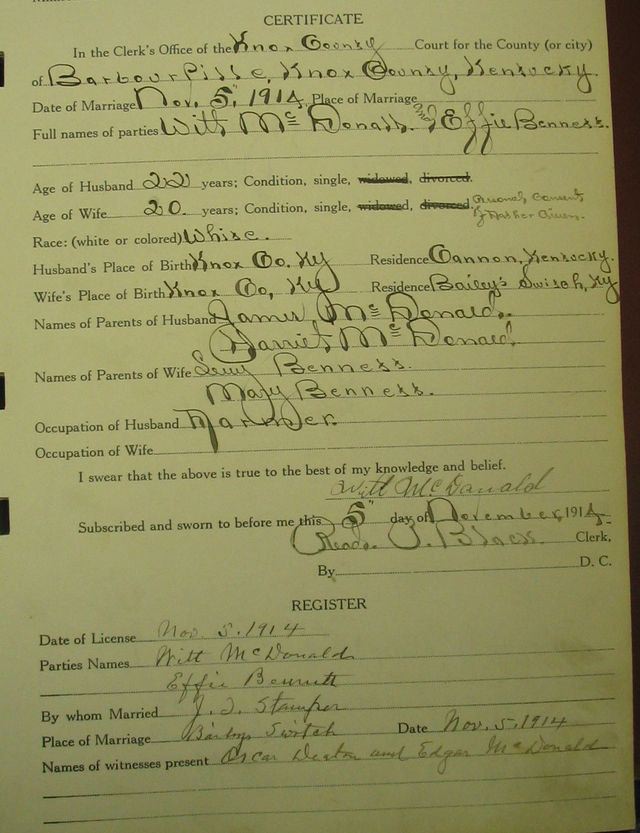 CERTIFICATE
In the Clerk's Office of the Knox County Court for the County (or city)
of Barbourville, Knox County, Kentucky.
Date of Marriage Nov. 5, 1914, Place of Marriage
Full names of parties Witt McDonald. & Effie Bennett.
Age of Husband 22 years; Condition, single, widowed, divorced.
Age of Wife 20. years; Condition, single, widowed, divorced. Personal Consent
of Father Given.
Race: (white or colored) White.
Husband's Place of Birth Knox Co. Ky Residence Cannon, Kentucky.
Wife's Place of Birth Knox Co, Ky Residence Bailey's Switch, Ky
Names of Parents of Husband James McDonald.
Harriet McDonald
Names of Parents of Wife Bennett.
Mary Bennett.
Occupation of Husband Farmer.
Occupation of Wife
I swear that the above is true to the best of my knowledge and belief.
Witt McDonald
Subscribed and sworn to before me this 5" day of November, 1914
Read P. Black. Clerk,
By D. C.
REGISTER
Date of License Nov. 5. 1914
Parties Names Witt McDonald
Effie Bennett
By whom Married J. J. Stamper
Place of Marriage Switch Date Nov. 5, 1914
Names of witnesses present Oscar Deaton and Edgar McDonald